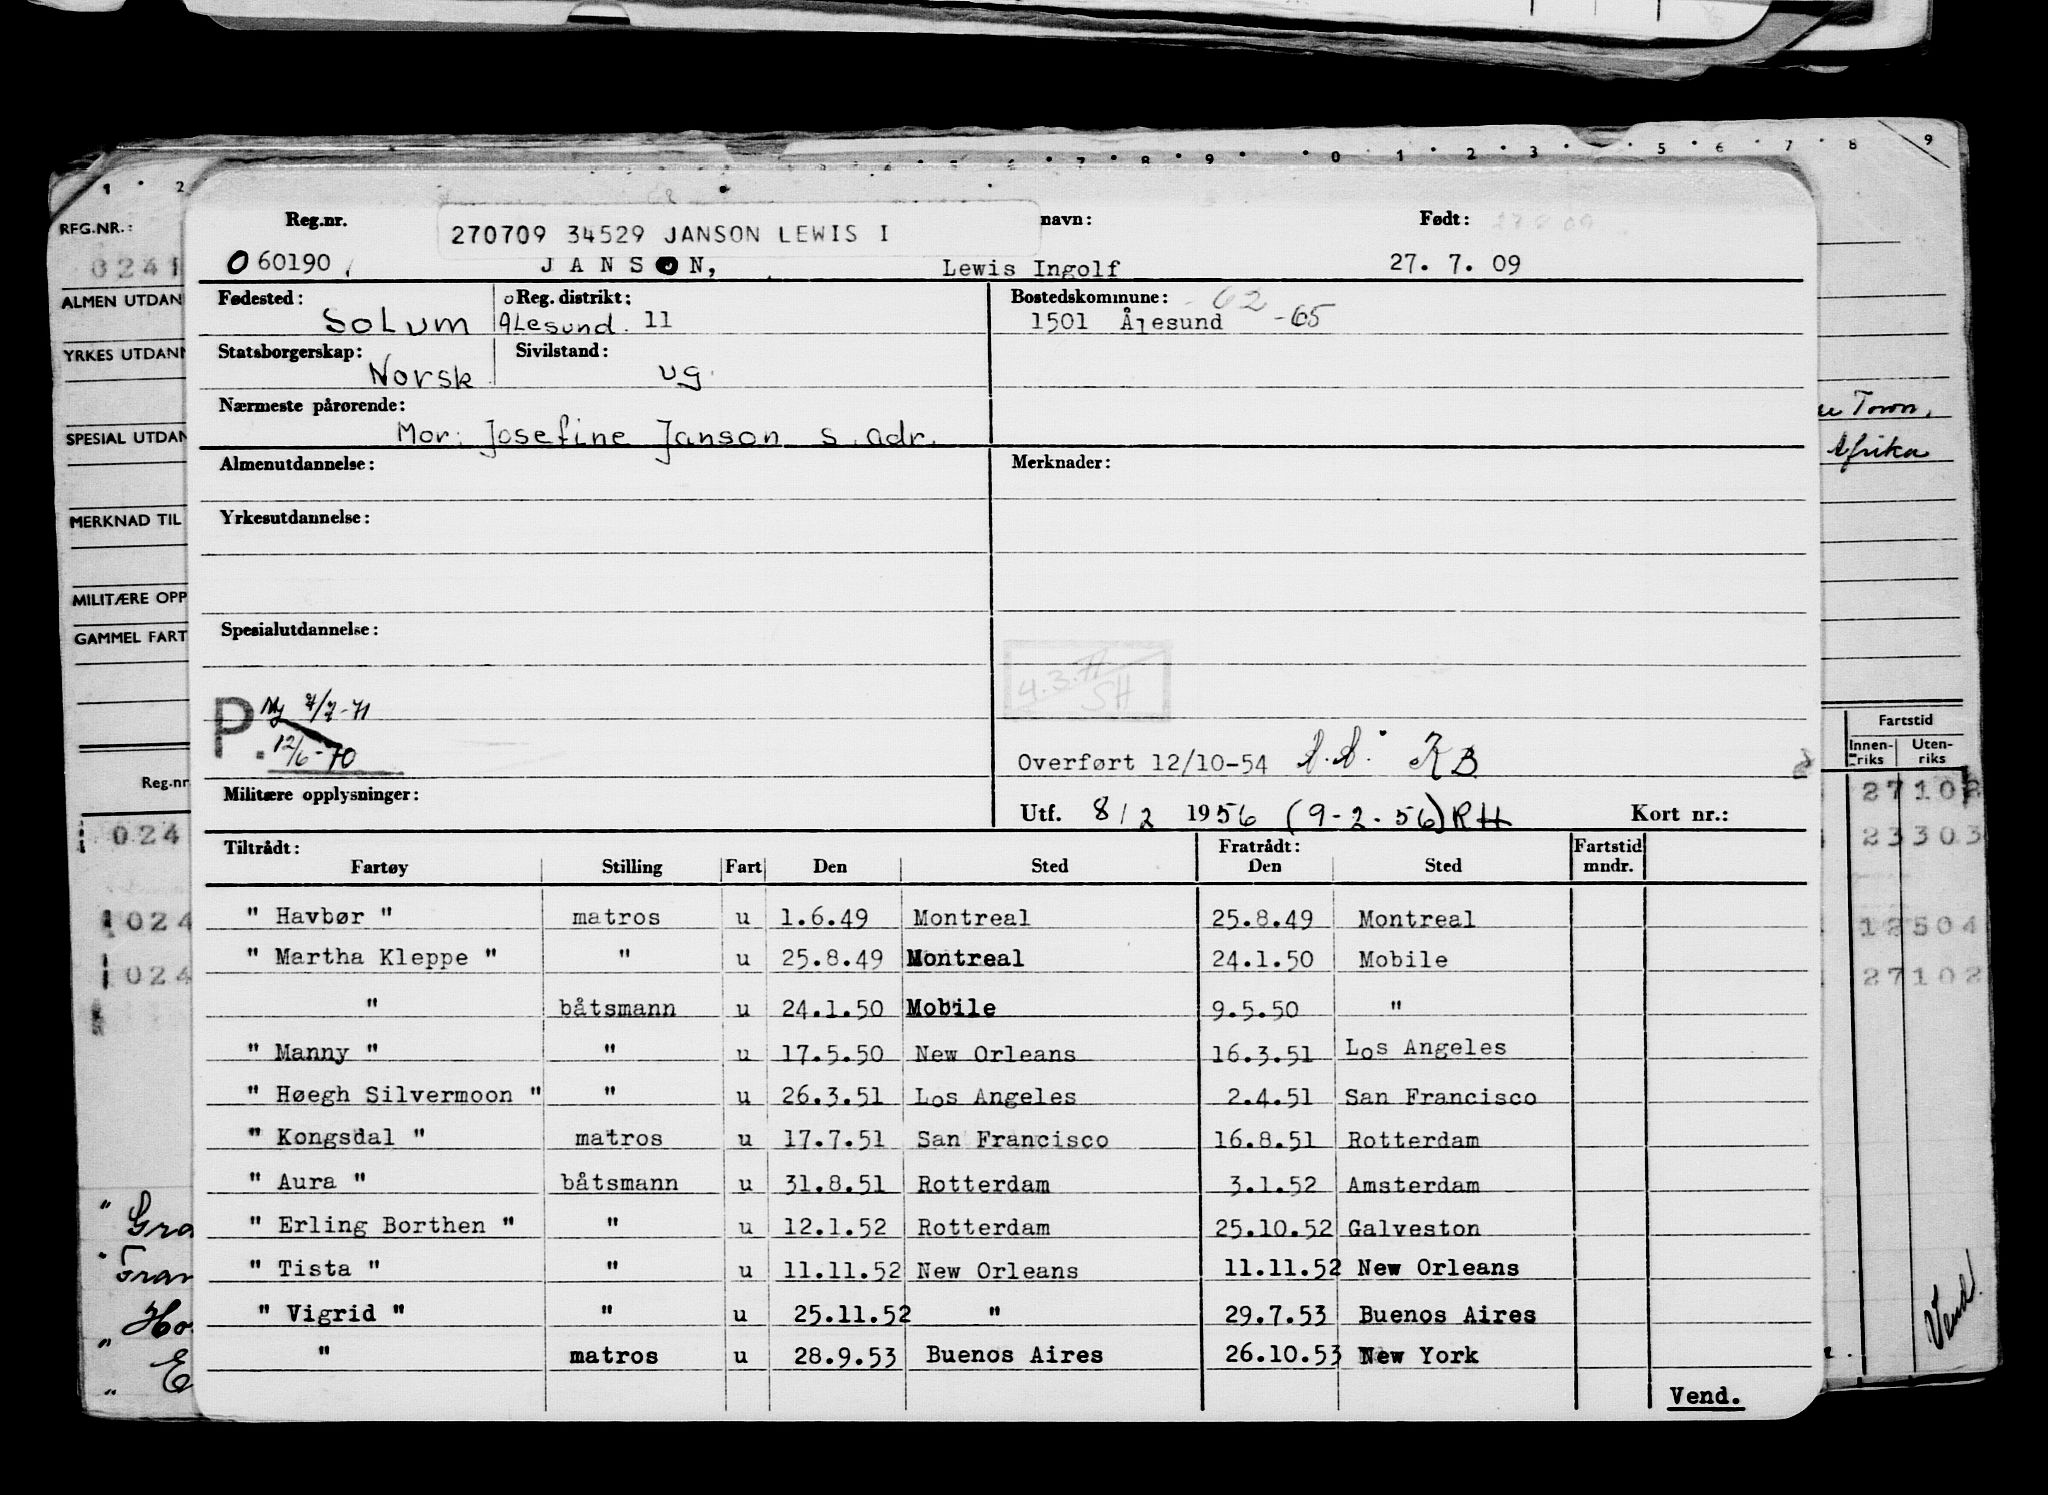 1 · 2 4 · 5 · 6 · 7 · 8 · 9 · · 0 · 1 · 2 · 3 · · 5 · 6 · 7 · 8 · 9
REG.NR.:
0241
ALMEN UTDAN
YRKES UTDANN
SPESIAL UTDAN
MERKNAD TIL
MILITÆRE OPP
GAMMEL FART
Reg.nr
024
024
024
" Gra
" Fran
" Ho
" E
Reg.nr. navn: Født:
270709 34529 JANSON LEWIS I
060190 JANSON, Lewis Ingolf 27. 7. 09
Fødested: Reg. distrikt: Bostedskommune: 62
Solum Ålesund. 11 1501 Ålesund -65
Statsborgerskap: Sivilstand:
Norsk ug.
Nærmeste pårørende:
Mor: Josefine Janson s. adr.
Almenutdannelse: Merknader:
Yrkesutdannelse:
Spesialutdannelse:
4.3.71
SH
P. Ny 7/7-71
12/6-70
Overført 12/10-54 KB
Militære opplysninger: Utf. 8/2 1956 (9-2-56) RH Kort nr.:
Tiltrådt: Fratrådt: Fartstid
Fartøy Stilling Fart Den Sted Den Sted mndr.
" Havbør " matros u 1.6.49 Montreal 25.8.49 Montreal
" Martha Kleppe " " u 25.8.49 Montreal 24.1.50 Mobile
" båtsmann u 24.1.50 Mobile 9.5.50 "
" Manny " " u 17.5.50 New Orleans 16.3.51 Los Angeles
" Høegh Silvermoon " " u 26.3.51 Los Angeles 2.4.51 San Francisco
" Kongsdal " matros u 17.7.51 San Francisco 16.8.51 Rotterdam
" Aura " båtsmann u 31.8.51 Rotterdam 3.1.52 Amsterdam
" Erling Borthen " " u 12.1.52 Rotterdam 25.10.52 Galveston
" Tista " " u 11.11.52 New Orleans 11.11.52 New Orleans
" Vigrid " " u 25.11.52 " 29.7.53 Buenos Aires
" matros u 28.9.53 Buenos Aires 26.10.53 New York
Vend.
Town,
Afrika
Fartstid
Innen-riks Uten-riks
27102
23303
12504
27102
Vend!